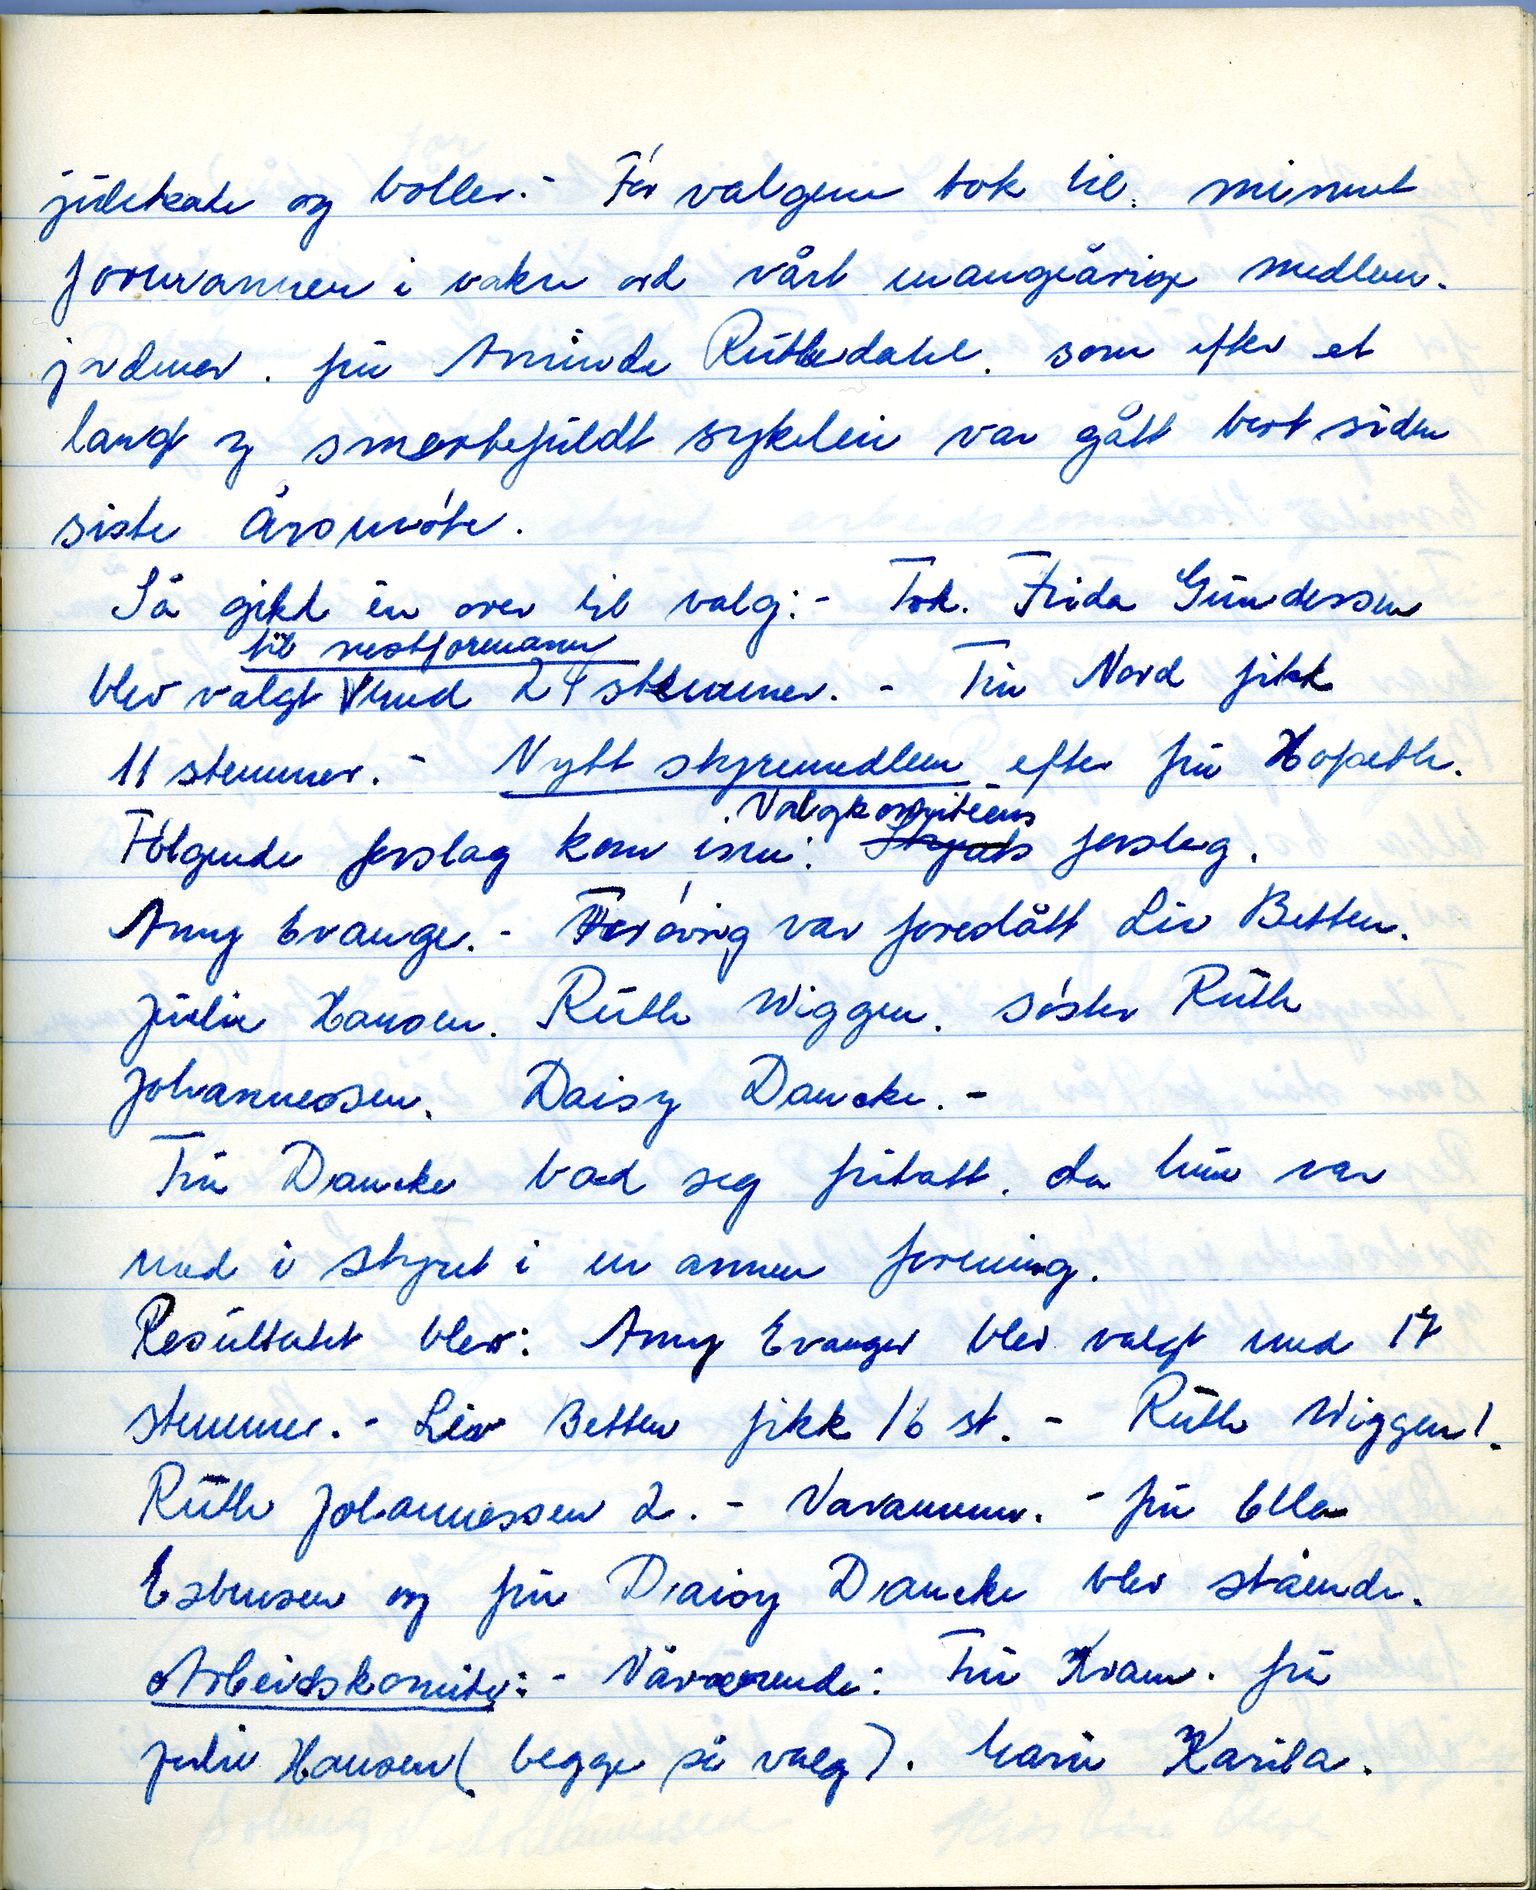 julekake og boller.- Før valgene tok til, mintet
formannen i vakre ord vårt mangeårige medlem,
jordmor, fru Aminda Rutledahl, som efter et
langt og smertefuldt sykeleie var gått bort siden
siste Årsmøte.
Så gikk en over til valg:- Frk. Frida Gundersen
til nestformann
blev valgt med 24 stemmer. - Fru Nord fikk
11 stemmer.- Nytt styremedlem efter fru Hopseth.
Valgkomiteens
Følgende forslag kom inn: Styrets forslag.
Amy Evange.- Forøvrig var foreslått Liv Betten.
Julie Hansen. Ruth Wiggen. søster Ruth
Johannessen. Daisy Dancke.-
Fru Dancke bad seg fritatt, da hun var
med i styret i en annen forening.
Resultatet blev: Amy Evanger blev valgt med 17
stemmer.- Liv Betten fikk 16 st. - Ruth Wiggen 1.
Ruth Johannessen 2. - Varamenn. - fru Ella
Estensen og fru Daisy Dancke blev stående.
Arbeidskomite:- Nåværende: Fru Kvam. fru
Julie Hansen (begge på valg). Marie